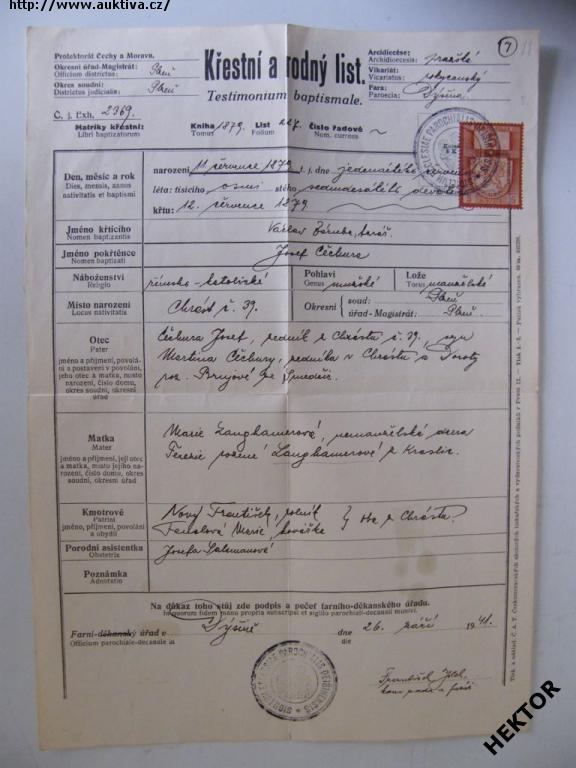 http://www.auktiva.cz/
7
Protektorát Čechy a Morava.
Okresní úřad-Magistrát:
Officium districtus:
Okres soudní:
Districtus judicialis:
Č. j. Exh. 2369.
Křestní a rodný list.
Testimonium baptismale.
Arcidiecése: pražské
Archidioecesis
Vikariát: rokycanský
Vicariatus
Fara: Dýšina
Paroecia
Matriky křestní:
Libri baptizatorum
Kniha 1879. List 227. Číslo řadové ~
Tomus Folium Num. currens
Den, měsíc a rok
Dies, mensis, annus
nativitatis et baptismi
narození 11. července 1879 t. j. dne jedenáctého července
léta: tisícího osmi stého sedmdesátého devátého
křtu: 12. července 1879
Jméno křtícího
Nomen baptizantis
Václav
Jméno pokřtěnce
Nomen baptizati
Josef Čechura
Náboženství
Religio
římsko-katolické
Pohlaví
Genus
mužské
Lože
Torus
manželské
Místo narození
Locus nativitatis
Chrást č. 39.
Okresní
soud: Plzeň
úřad-Magistrát: Plzeň
Otec
Pater
jméno a příjmení, povolání
a postavení v povolání,
jeho otec a matka, místo
narození, číslo domu,
okres soudní, okresní
úřad
Čechura Josef, sedlák z Chrástu č. 39, syn
Martina Čechury, sedláka v Chrástu a Doroty
roz.
Matka
Mater
jméno a příjmení, její otec
a matka, místo jejího narození,
číslo domu, okres
soudní, okresní úřad
Marie Langhamerová, nemanželská dcera
Terezie rozené Langhamerové z Kraslic.
Kmotrové
Patrini
jméno, příjmení, povolání
a obydlí
Nový František, rolník
Marie, kovářka
oba z Chrástu.
Porodní asistentka
Obstetrix
Josefa Salzmanová
Poznámka
Adnotatio
Na důkaz toho stůj zde podpis a pečeť farního-děkanského úřadu.
In quorum fidem manu propria subscripsi et sigillo parochiali-decanali munivi.
Farní-děkanský úřad v Dýšině dne 26. září 1941.
Officium parochiale-decanale in die
František
HEKTOR